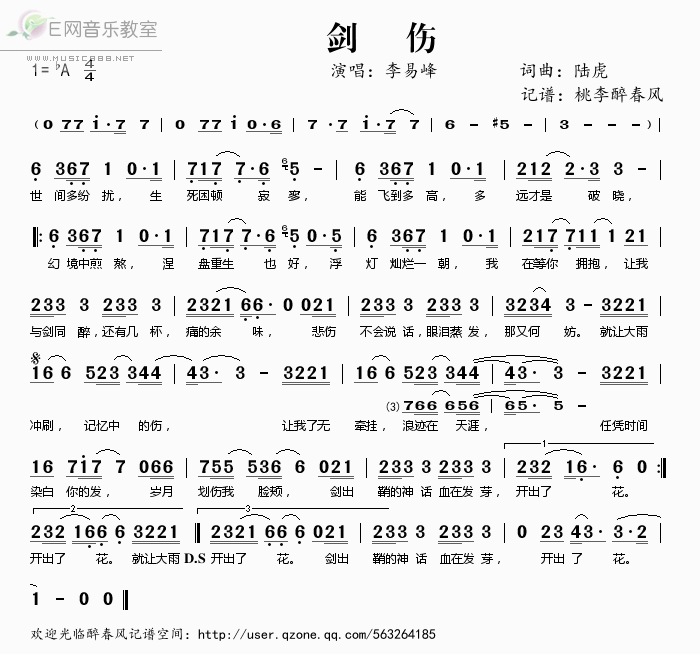 E网音乐教室
WWW.MUSIC888.NET
剑 伤
1=♭A 4/4
演唱：李易峰
词曲：陆虎
记谱：桃李醉春风
(0 77 i·7 7 | 0 77 i 0·6 | 7 ·7 i·7 7 | 6 - #5 - | 3 - - - )|
6 367 1 0·1 | 717 7·6 6 5 - | 6 367 1 0·1 | 212 2·3 3 - |
世 间多纷 扰， 生 死困顿 寂 寥， 能 飞到多 高，多 远才是 破晓，
‖: 6 367 1 0·1 | 717 7·6 6 5 0·5 | 6 367 1 0·1 | 217 711 1 21 |
幻 境中煎 熬， 涅 盘重生 也 好，浮 灯 灿烂一 朝，我 在等你 拥抱，让我
233 3 233 3 | 2321 66· 0 021 | 233 3 233 3 | 3234 3 - 3221 |
与剑同 醉，还有几 杯，痛的余 味， 悲伤 不会说 话，眼泪蒸 发，那又何 妨。就让大雨
16 6 523 344 | 43· 3 - 3221 | 16 6 523 344 | 43· 3 - 3221 |
(3) 766 656 | 65· 5 -
冲刷， 记忆中 的伤， 让我了无 牵挂， 浪迹在 天涯， 任凭时间
1
16 7i7 7 066 | 755 536 6 021 | 233 3 233 3 | 232 16· 6 0 :‖
染白 你的发， 岁月 划伤我 脸颊， 剑出 鞘的神 话 血在发 芽，开出了 花。
2 3
232 166 6 3221 ‖ 2321 66 6 021 | 233 3 233 3 | 0 23 43· 3·2 |
开出了 花。就让大雨 D.S 开出了 花。 剑出 鞘的神 话 血在发 芽， 开出 了 花。
1 - 0 0 ‖
欢迎光临醉春风记谱空间：http://user.qzone.qq.com/563264185